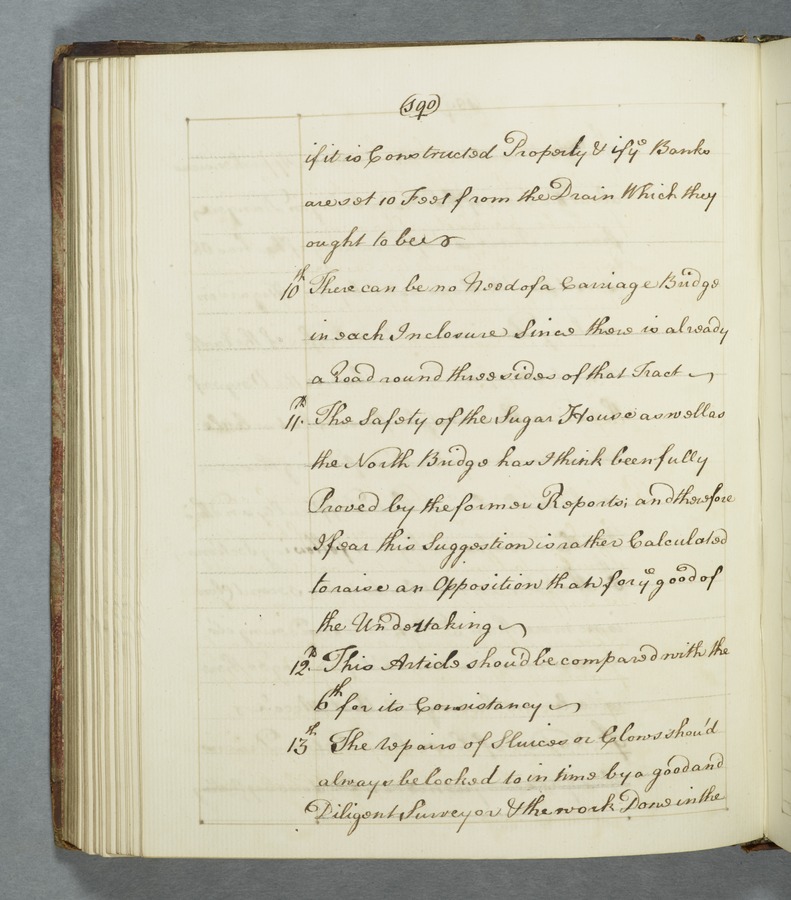 (190)
if it is Constructed Properly & if yᵉ Banks
are set 10 Feet from the Drain Which they
ought to be
10ᵗʰ There can be no Need of a Carriage Bridge
in each Inclosure Since there is already
a Road round three sides of that Tract
11.ᵗʰ The Safety of the Sugar House as well as
the North Bridge has I think been fully
Proved by the former Reports; and therefore
I fear this Suggestion is rather Calculated
to raise an Opposition than for yᵉ good of
the Undertaking
12.ᵗʰ This Article shou'd be compared with the
6ᵗʰ for its Consistancy
13ᵗʰ The repairs of Sluices or Clows shou'd
always be looked to in time by a good and
Diligent Surveyor & the work Done in the